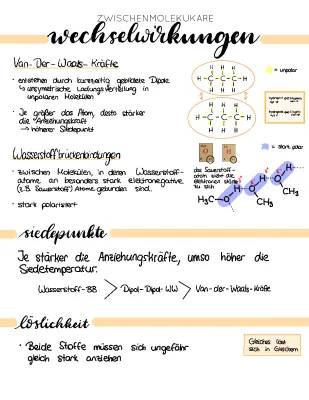 ZWISCHENMOLEKULARE
wechselwirkungen
Van-Der-Waals-Kräfte
· entstehen durch kurzzeitig gebildete Dipole
↳ unsymmetrische Ladungsverteilung in
unpolaren Molekülen
· Je größer das Atom, desto stärker
die Anziehungskraft
→ höherer Siedepunkt
= unpolar
H H H
H-C-C-C-H
H H H
H H H
H-C-C-C-H
H H H
Wasserstoffbrückenbindungen
· zwischen Molekülen, in denen Wasserstoff-
atome an besonders stark elektronegative
(z.B. Sauerstoff) Atome gebunden sind.
· stark polarisiert
das Sauerstoff-
atom zieht die
elektronen stärker
zu sich
= stark polar
H₃C-O
H
O
CH₃
H
O
CH₃
siedepunkte
Je stärker die Anziehungskräfte, umso höher die
Siedetemperatur.
Wasserstoff-BB > Dipol-Dipol-WW > Van-der-Waals-Kräfte
löslichkeit
· Beide Stoffe müssen sich ungefähr
gleich stark anziehen
Gleiches löst
sich in Gleichem